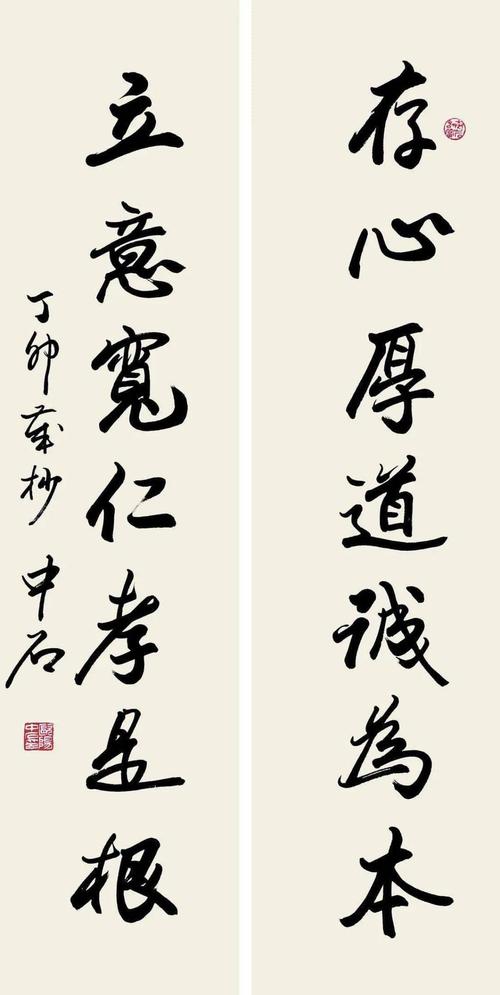 存心厚道诚為本
立意寬仁孝是根
丁卯歲杪
中石